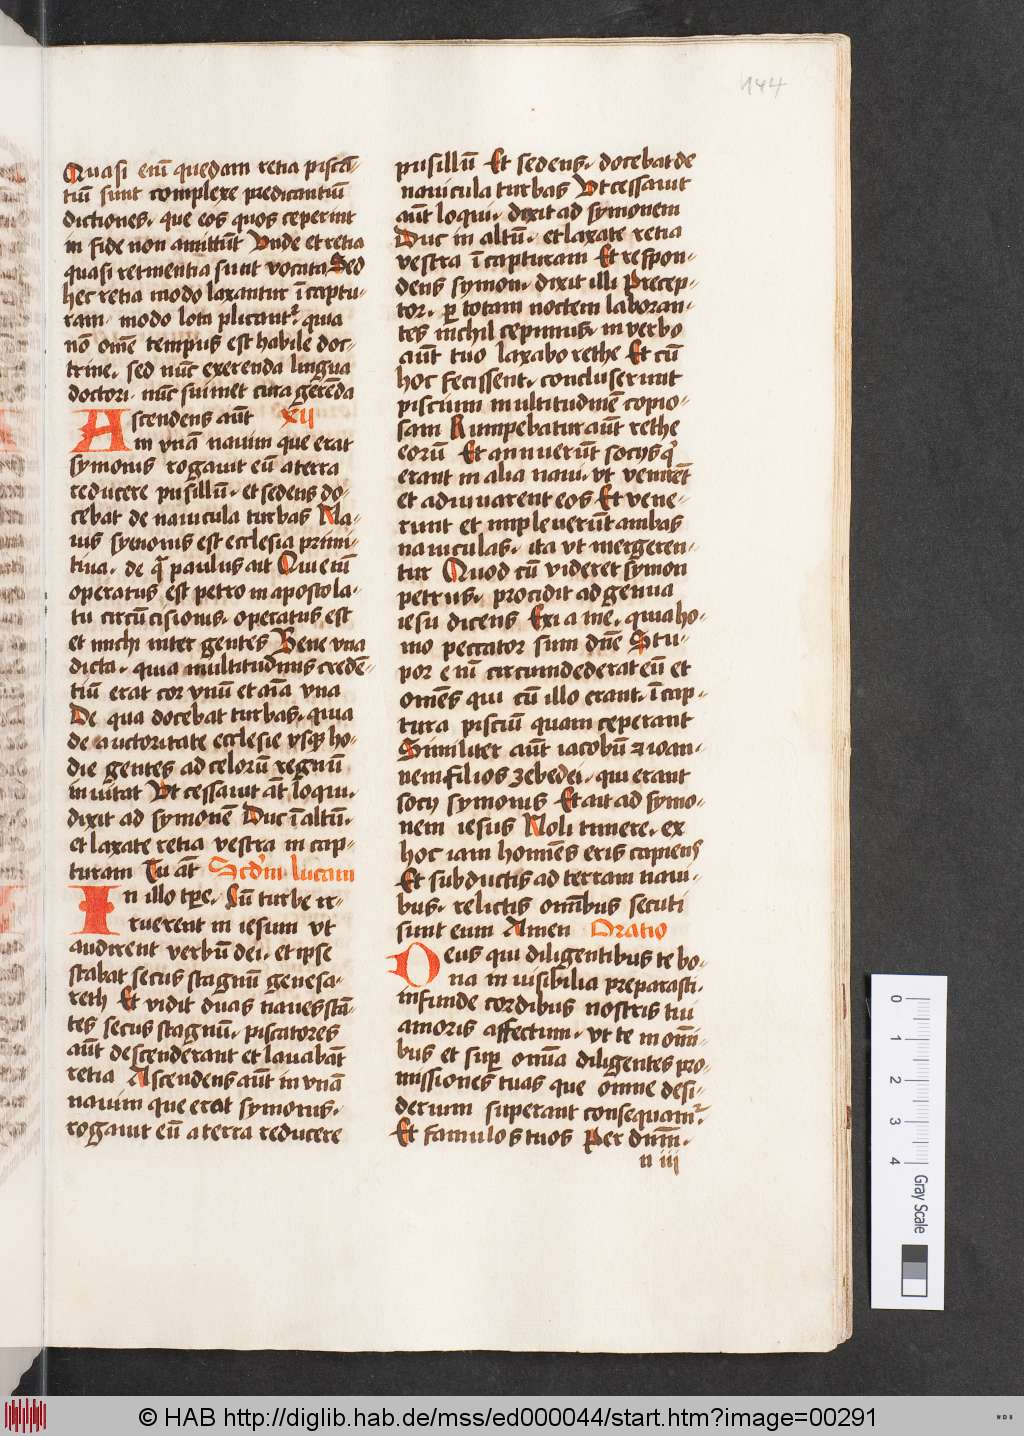 144
Quasi enī quedam retia piscā-
tiū sunt complexe predicantiū
dictiones. que eos quos ceperint
in fide non amittūt Unde et retia
quasi retinentia sunt vocata Sed
hec retia modo laxantur ī captu-
ram. modo lota plicantʳ. quia
nō omē tempus est habile doc-
trine. sed nūc exerenda lingua
doctori. nūc suimet cura gerēda
Ascendens aūt xii
in vnā nauim que erat
symonis rogauit eū a terra
reducere pusillū. et sedens do-
cebat de nauicula turbas Na-
uis symonis est ecclesia primi-
tiua. de qͣ paulus ait Qui enī
operatus est petro in apostola-
tu circūcisionis. operatus est
et michi inter gentes Bene vna
dicta. quia multitudinis credē-
tiū erat cor vnū et aīa vna
De qua docebat turbas. quia
de auctoritate ecclesie vsqꝫ ho-
die gentes ad celorū regnū
inuitat Vt cessauit āt loqui.
dixit ad symonē Duc ī altū.
et laxate retia vestra in cap-
turam Tu āt Scd'm lucam
In illo tꝑe. Cū turbe ir-
ruerent in iesum vt
audirent verbū dei. et ipse
stabat secus stagnū genesa-
reth Et vidit duas naues stā-
tes secus stagnū. piscatores
aūt descenderant et lauabāt
retia Ascendens aūt in vnā
nauim que erat symonis.
rogauit eū a terra reducere
pusillū Et sedens. docebat de
nauicula turbas Vt cessauit
aūt loqui. dixit ad symonem
Duc in altū. et laxate retia
vestra ī capturam Et respon-
dens symon. dixit illi Precep-
tor. ꝑ totam noctem laboran-
tes nichil cepimus. in verbo
aūt tuo laxabo rethe Et cū
hoc fecissent. concluserunt
piscium multitudinē copio-
sam Rumpebatur aūt rethe
eorū Et annuerūt socijs qͥ
erant in alia naui. vt venirēt
et adiuuarent eos Et vene-
runt et impleuerūt ambas
nauiculas. ita vt mergeren-
tur Quod cū videret symon
petrus. procidit ad genua
iesu dicens Exi a me. quia ho-
mo peccator sum dn̄e Stu-
por enī circumdederat eū et
omēs qui cū illo erant. ī cap-
tura pisciū quam ceperant
Similiter aūt iacobū ⁊ ioan-
nem filios zebedei. qui erant
socij symonis Et ait ad symo-
nem iesus Noli timere. ex
hoc iam homīes eris capiens
Et subductis ad terram naui-
bus. relictis omībus secuti
sunt eum Amen Oratio
Deus qui diligentibus te bo-
na inuisibilia preparasti.
infunde cordibus nostris tui
amoris affectum. vt te in omī-
bus et suꝑ omīa diligentes pro-
missiones tuas que omne desi-
derium superant consequamʳ.
Et famulos tuos Per dnm̄.
n iii
0
1
2
3
4
Gray Scale
© HAB http://diglib.hab.de/mss/ed000044/start.htm?image=00291
WDB